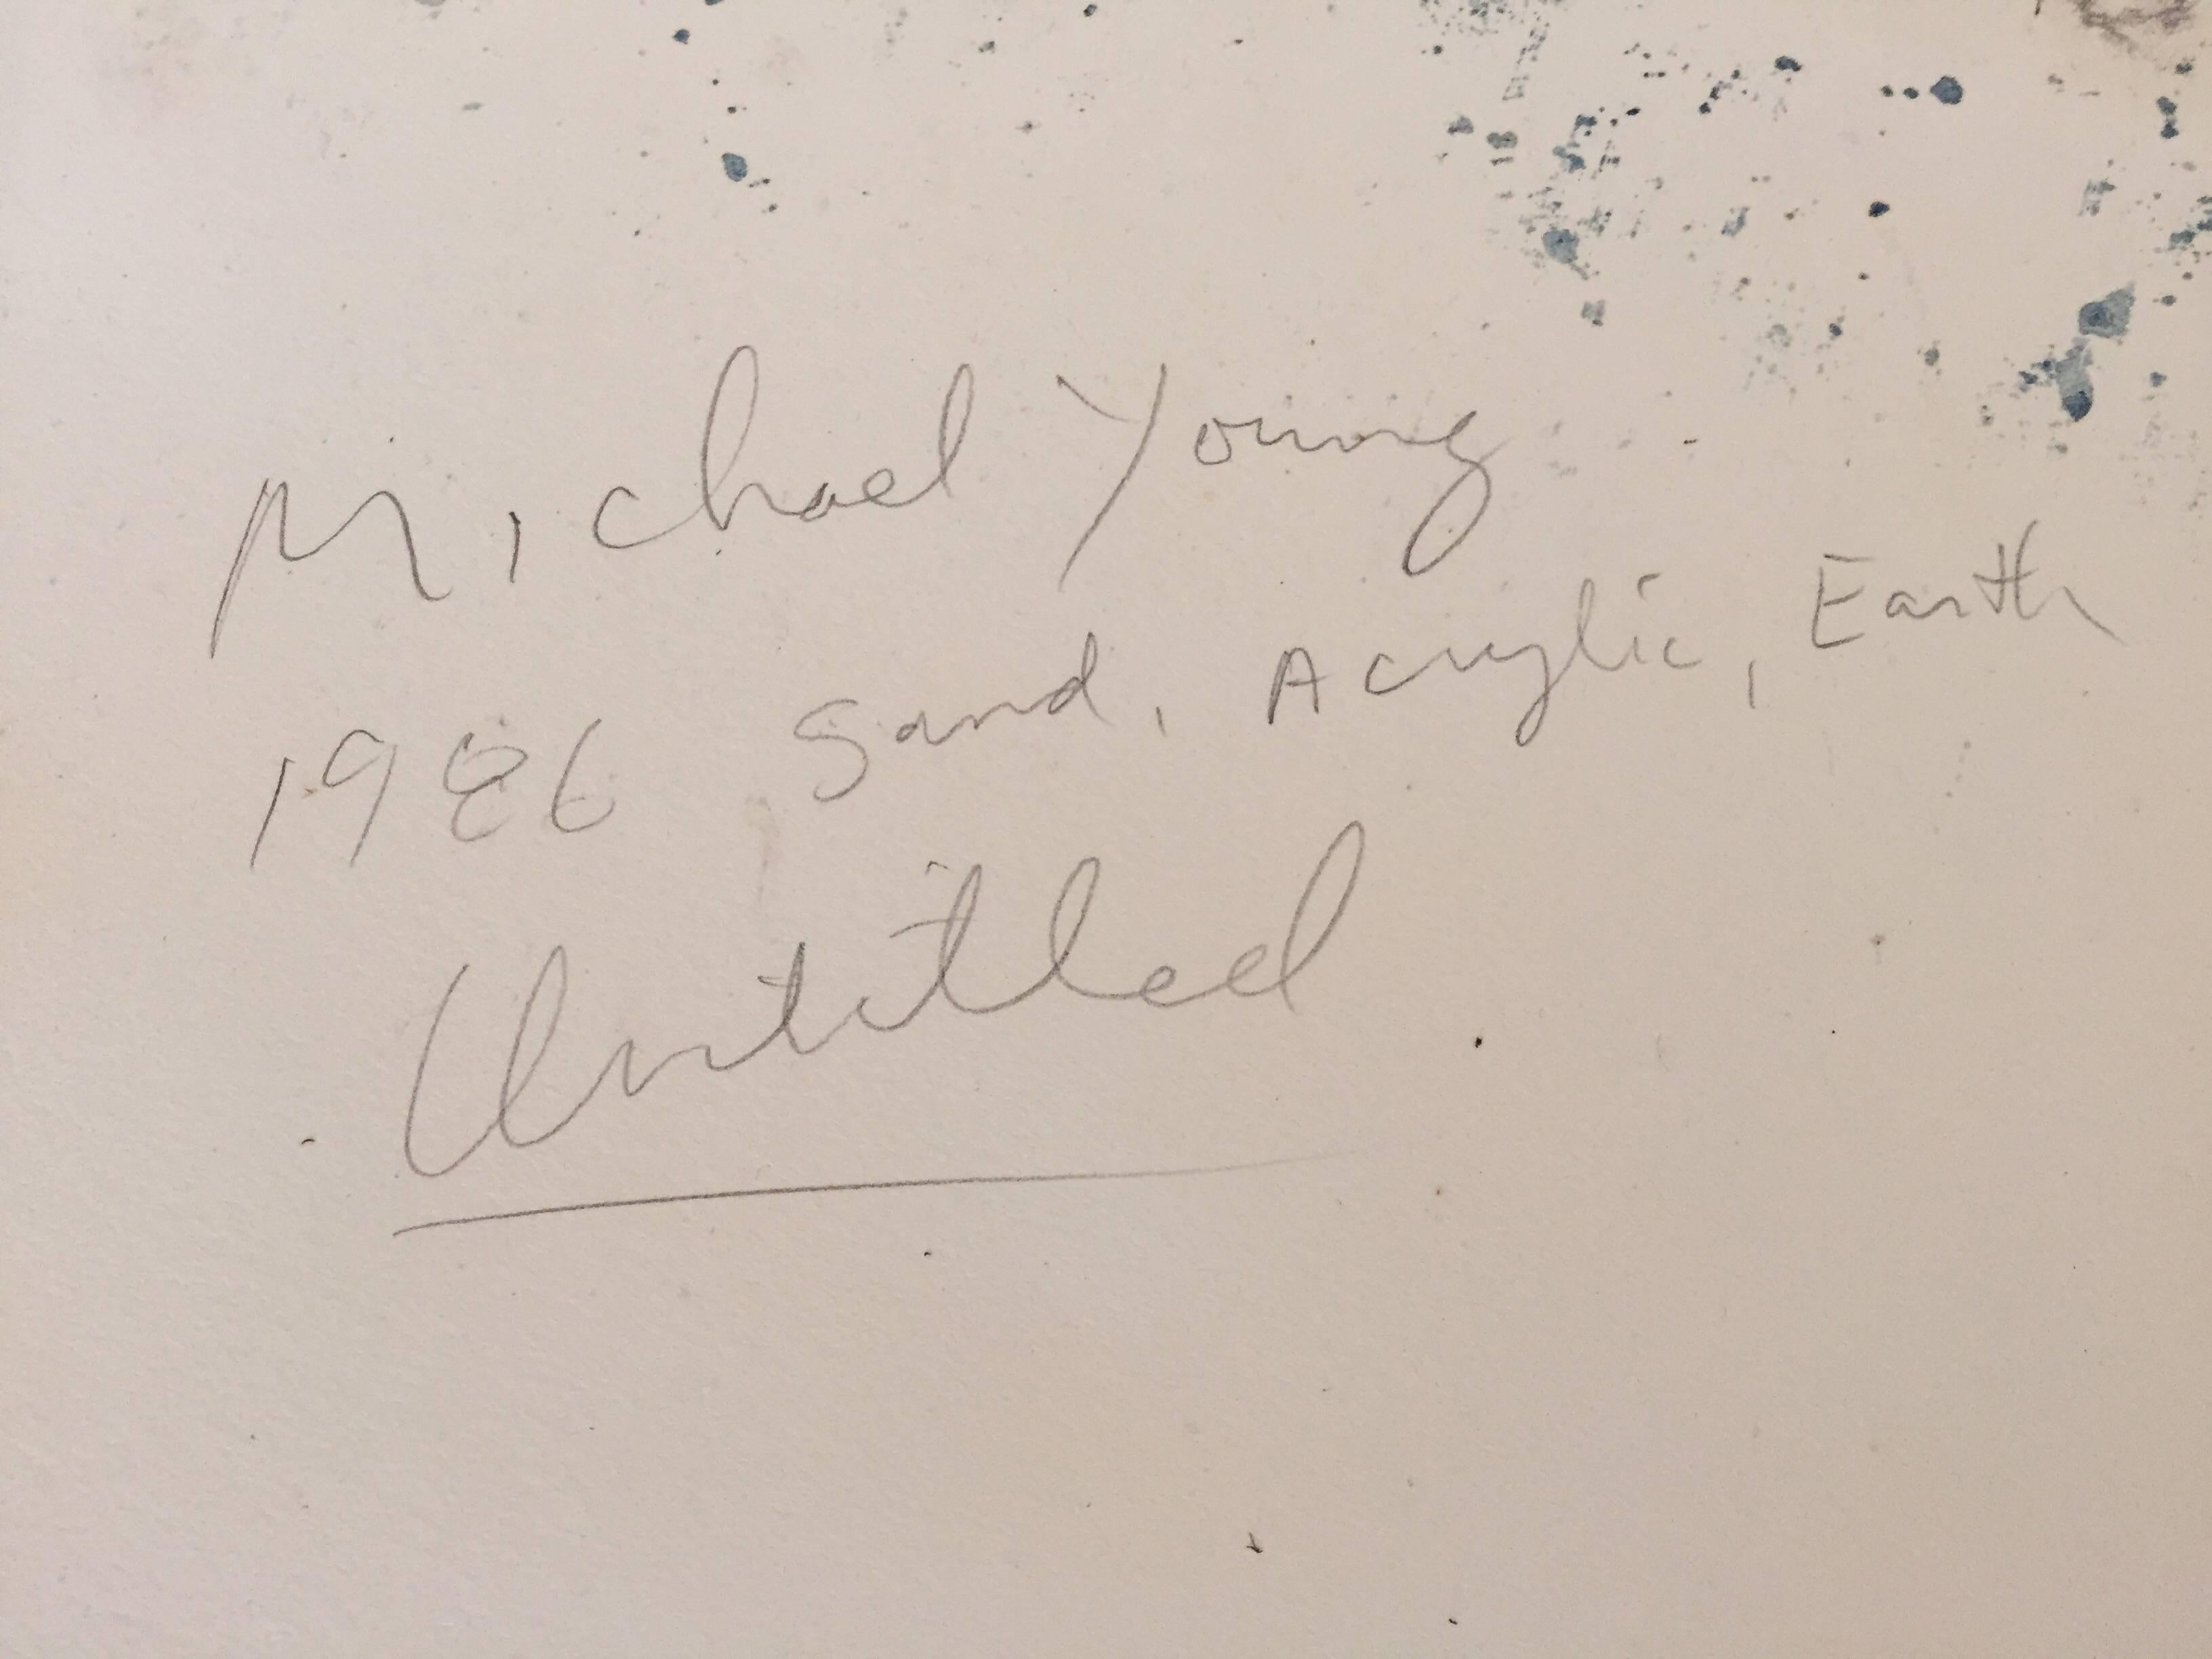 Michael Young
1986 Sand, Acrylic, Earth
Untitled